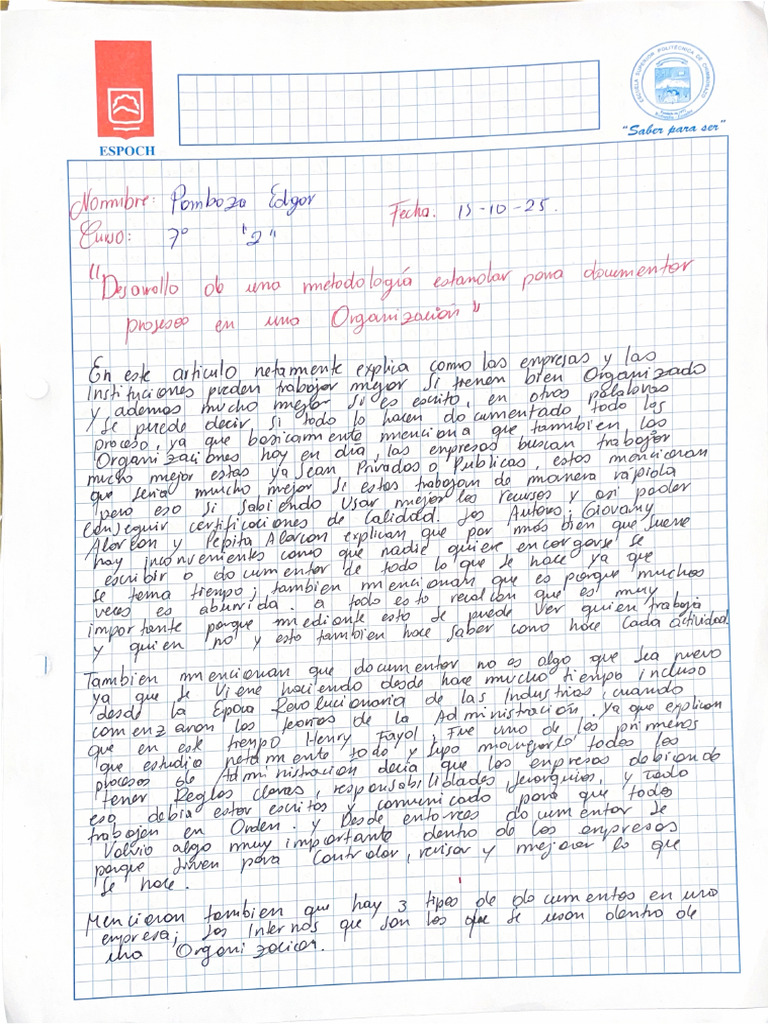 ESPOCH
ESCUELA SUPERIOR POLITÉCNICA DE CHIMBORAZO
"Saber para ser"
Nommbre: Pomboza Edgar Fecha. 15-10-25.
Curso: 7° "2"
"Desarrollo de una metodología estandar para documentar
proseso en una Organización"
En este articulo netamente explica como las enpresas y las
Instituciones pueden trabajar mejor si tienen bien Organizado
y ademas mucho mejor si es escrito, en otros palabras
se puede decir si todo lo hacen documentado todo los
proceso, ya que basicamente menciona que tambien las
Organizaciones hoy en día, las enpresas buscan trabajar
mucho mejor estas ya sean Privados o Publicas, estos mencionan
que seria mucho mejor si estas trabajan de manera rápida
pero eso si sabiendo usar mejor los recursos y asi poder
conseguir certificaciones de calidad. Los Autores; Giovany
Alarcon y Pepita Alarcon explican que por mas bien que suene
hay inconvenientes como que nadie quiere encargarse se
escribir o documentar de todo lo que se hace ya que
se toma tiempo; tambien mencionan que es porque muchas
veces es aburrida. a todo esto recalcan que es muy
importante porque mediante esto se puede ver quien trabaja
y quien no y esto tambien hace saber como hace cada actividad
Tambien mencionan que documentar no es algo que sea nuevo
ya que se viene haciendo desde hace mucho tiempo incluso
desde la Epoca Revolucionaria de las Industrias, cuando
comenzaron las teorias de la Administración. Ya que explican
que en este tienpo Henry Fayol, Fue uno de los primeros
que estudio netamente todo y supo manejarlo, todos los
procesos de Administracion decia que las enpresas debiendo
tener Reglas claras, responsabilidades Jerarquias, y todo
eso debia estar escritos y comunicado para que todos
trabajen en Orden. y Desde entonces documentar se
Volvio algo muy importante dentro de las enpresas
porque sirven para Controlar, revisar y mejorar lo que
se hace.
Mencionan tambien que hay 3 tipos de documentos en una
empresa; los Internos que son los que se usan dentro de
una Organizacion.